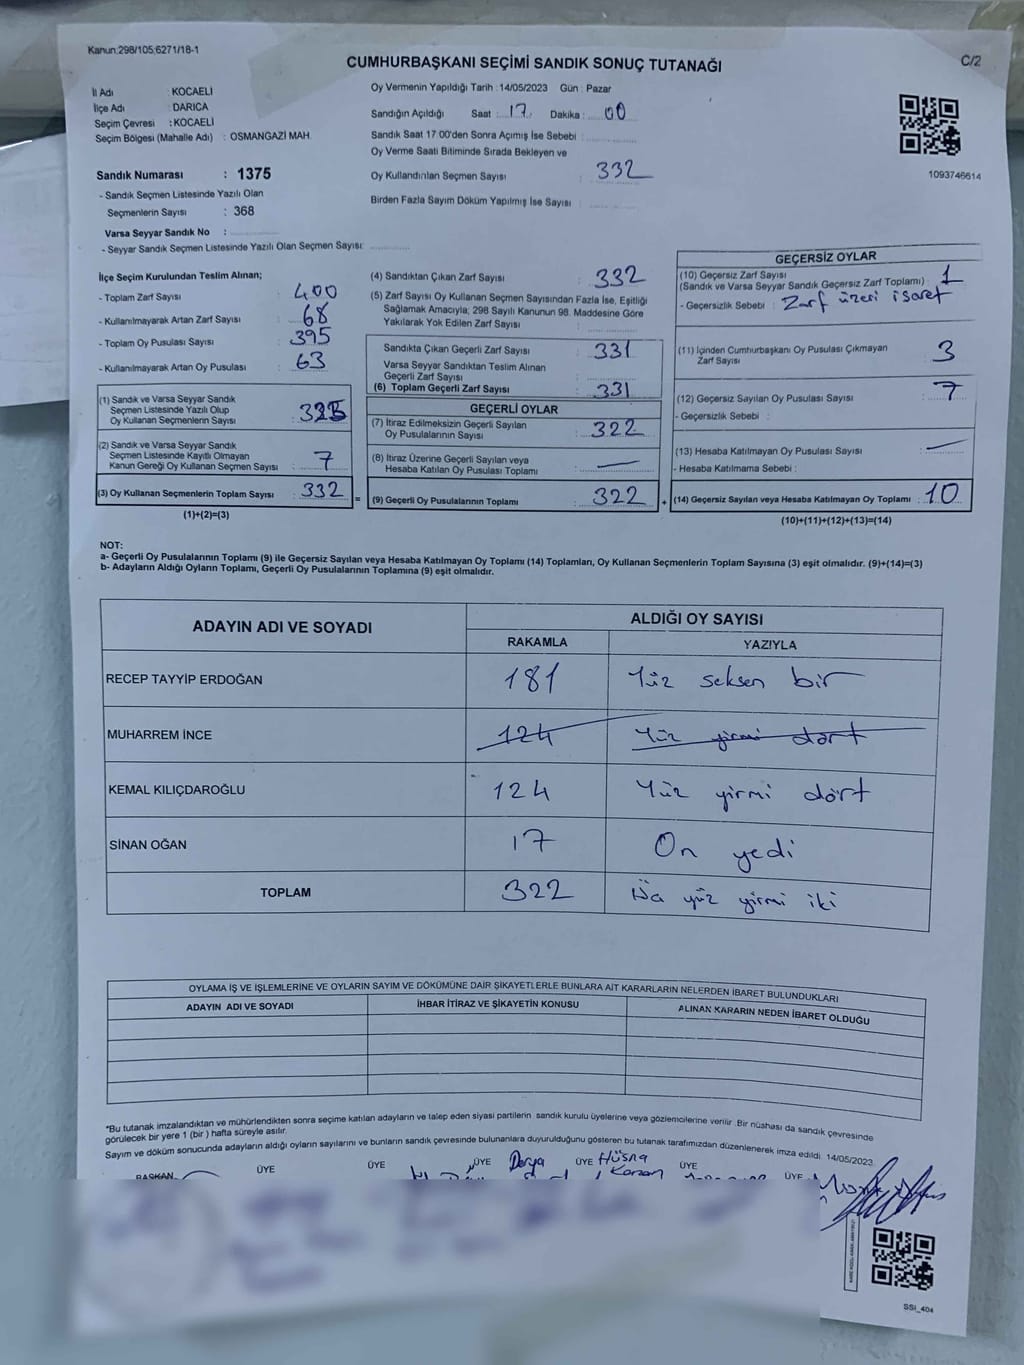 Kanun:298/105;6271/18-1
CUMHURBAŞKANI SEÇİMİ SANDIK SONUÇ TUTANAĞI
C/2
İl Adı : KOCAELİ
İlçe Adı : DARICA
Seçim Çevresi : KOCAELİ
Seçim Bölgesi (Mahalle Adı) : OSMANGAZİ MAH.
Oy Vermenin Yapıldığı Tarih : 14/05/2023 Gün : Pazar
Sandığın Açıldığı Saat : 17 Dakika : 00
Sandık Saat 17:00'den Sonra Açımış İse Sebebi :
Oy Verme Saati Bitiminde Sırada Bekleyen ve
Oy Kullandırılan Seçmen Sayısı : 332
Birden Fazla Sayım Döküm Yapılmış İse Sayısı :
1093746614
Sandık Numarası : 1375
- Sandık Seçmen Listesinde Yazılı Olan
Seçmenlerin Sayısı : 368
Varsa Seyyar Sandık No :
- Seyyar Sandık Seçmen Listesinde Yazılı Olan Seçmen Sayısı:
İlçe Seçim Kurulundan Teslim Alınan;
- Toplam Zarf Sayısı : 400
- Kullanılmayarak Artan Zarf Sayısı : 68
- Toplam Oy Pusulası Sayısı : 395
- Kullanılmayarak Artan Oy Pusulası : 63
(1) Sandık ve Varsa Seyyar Sandık
Seçmen Listesinde Yazılı Olup
Oy Kullanan Seçmenlerin Sayısı : 325
(2) Sandık ve Varsa Seyyar Sandık
Seçmen Listesinde Kayıtlı Olmayan
Kanun Gereği Oy Kullanan Seçmen Sayısı : 7
(3) Oy Kullanan Seçmenlerin Toplam Sayısı : 332
(1)+(2)=(3)
(4) Sandıktan Çıkan Zarf Sayısı : 332
(5) Zarf Sayısı Oy Kullanan Seçmen Sayısından Fazla İse, Eşitliği
Sağlamak Amacıyla; 298 Sayılı Kanunun 98. Maddesine Göre
Yakılarak Yok Edilen Zarf Sayısı :
Sandıkta Çıkan Geçerli Zarf Sayısı : 331
Varsa Seyyar Sandıktan Teslim Alınan
Geçerli Zarf Sayısı :
(6) Toplam Geçerli Zarf Sayısı : 331
GEÇERLİ OYLAR
(7) İtiraz Edilmeksizin Geçerli Sayılan
Oy Pusulalarının Sayısı : 322
(8) İtiraz Üzerine Geçerli Sayılan veya
Hesaba Katılan Oy Pusulası Toplamı : —
= (9) Geçerli Oy Pusulalarının Toplamı : 322
GEÇERSİZ OYLAR
(10) Geçersiz Zarf Sayısı
(Sandık ve Varsa Seyyar Sandık Geçersiz Zarf Toplamı) : 1
- Geçersizlik Sebebi : Zarf üzeri işaret
(11) İçinden Cumhurbaşkanı Oy Pusulası Çıkmayan
Zarf Sayısı : 3
(12) Geçersiz Sayılan Oy Pusulası Sayısı : 7
- Geçersizlik Sebebi :
(13) Hesaba Katılmayan Oy Pusulası Sayısı : —
- Hesaba Katılmama Sebebi :
+ (14) Geçersiz Sayılan veya Hesaba Katılmayan Oy Toplamı : 10
(10)+(11)+(12)+(13)=(14)
NOT:
a- Geçerli Oy Pusulalarının Toplamı (9) ile Geçersiz Sayılan veya Hesaba Katılmayan Oy Toplamı (14) Toplamları, Oy Kullanan Seçmenlerin Toplam Sayısına (3) eşit olmalıdır. (9)+(14)=(3)
b- Adayların Aldığı Oyların Toplamı, Geçerli Oy Pusulalarının Toplamına (9) eşit olmalıdır.
ADAYIN ADI VE SOYADI
ALDIĞI OY SAYISI
RAKAMLA YAZIYLA
RECEP TAYYİP ERDOĞAN 181 Yüz seksen bir
MUHARREM İNCE 124 Yüz yirmi dört
KEMAL KILIÇDAROĞLU 124 Yüz yirmi dört
SİNAN OĞAN 17 On yedi
TOPLAM 322 yüz yirmi iki
OYLAMA İŞ VE İŞLEMLERİNE VE OYLARIN SAYIM VE DÖKÜMÜNE DAİR ŞİKAYETLERLE BUNLARA AİT KARARLARIN NELERDEN İBARET BULUNDUKLARI
ADAYIN ADI VE SOYADI İHBAR İTİRAZ VE ŞİKAYETİN KONUSU ALINAN KARARIN NEDEN İBARET OLDUĞU
*Bu tutanak imzalandıktan ve mühürlendikten sonra seçime katılan adayların ve talep eden siyasi partilerin sandık kurulu üyelerine veya gözlemcilerine verilir. Bir nüshası da sandık çevresinde
görülecek bir yere 1 (bir) hafta süreyle asılır.
Sayım ve döküm sonucunda adayların aldığı oyların sayılarını ve bunların sandık çevresinde bulunanlara duyurulduğunu gösteren bu tutanak tarafımızdan düzenlenerek imza edildi. 14/05/2023
BAŞKAN ÜYE ÜYE ÜYE Derya ÜYE Hüsna ÜYE ÜYE
SSI_404